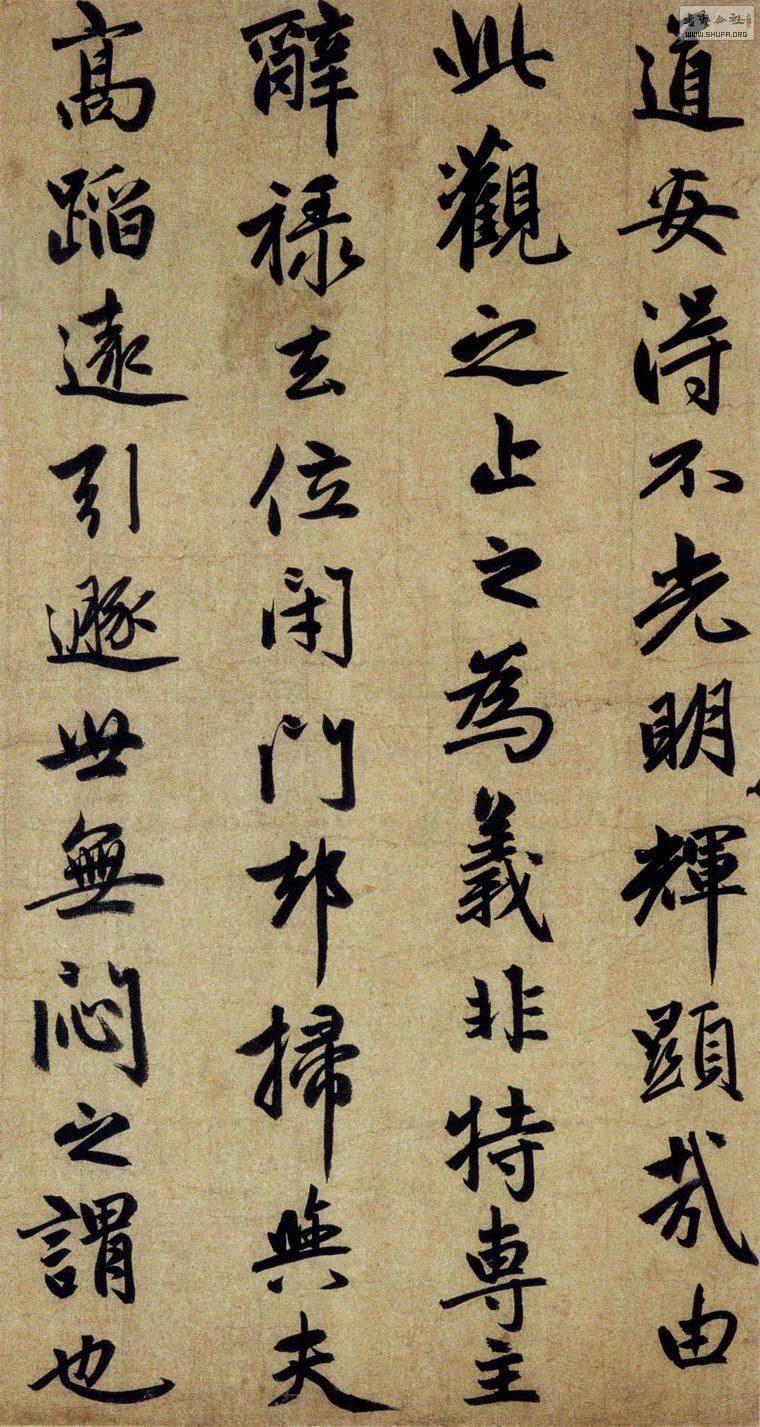 道安得不光明輝顯哉由
此觀之止之為義非特專主
辭祿去位閉門却掃與夫
高蹈遠引遯世無悶之謂也
WWW.SHUFA.ORG